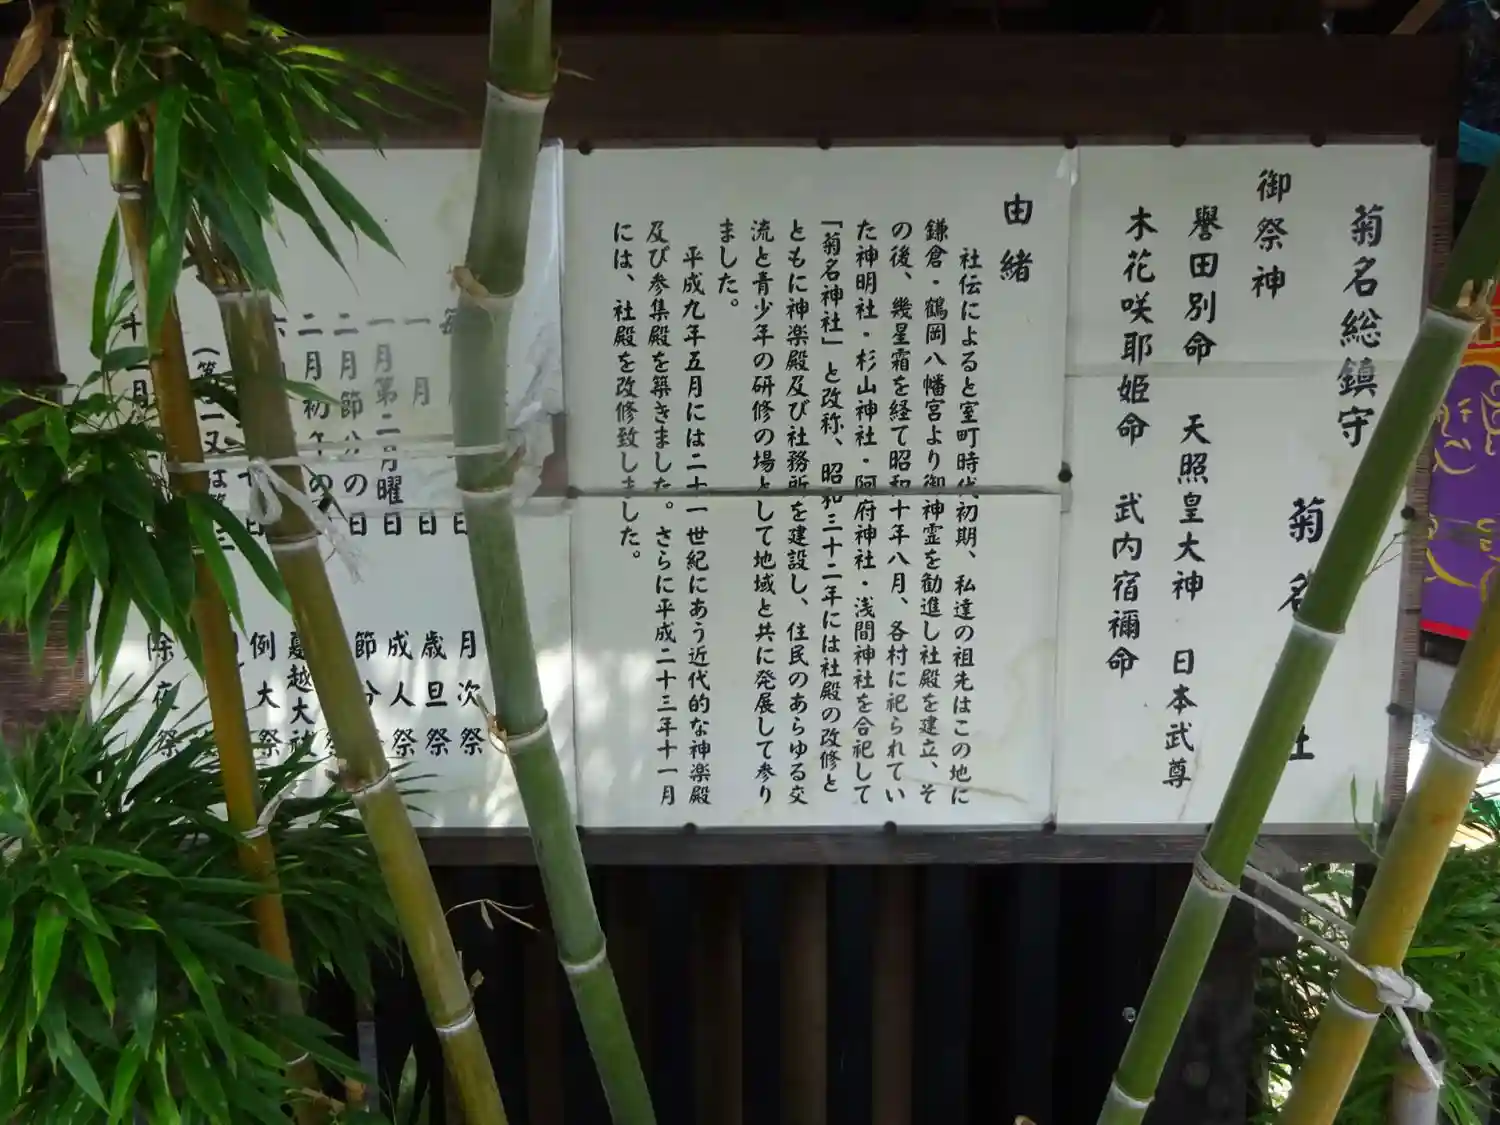 菊名総鎮守
菊名
御祭神
譽田別命　天照皇大神　日本武尊
木花咲耶姫命　武内宿禰命
由緒
社伝によると室町時代初期、私達の祖先はこの地に
鎌倉・鶴岡八幡宮より御神霊を勧進し社殿を建立、そ
の後、幾星霜を経て昭和十年八月、各村に祀られてい
た神明社・杉山神社・阿府神社・浅間神社を合祀して
「菊名神社」と改称、昭和三十二年には社殿の改修と
ともに神楽殿及び社務所を建設し、住民のあらゆる交
流と青少年の研修の場として地域と共に発展して参り
ました。
平成九年五月には二十一世紀にあう近代的な神楽殿
及び参集殿を築きました。さらに平成二十三年十一月
には、社殿を改修致しました。
日　月次祭
一月　日　歳旦祭
一月第二月曜日　成人祭
二月節分の日　節分
二月初午の
夏越大祓
日　例大祭
（第一又は第
除夜祭